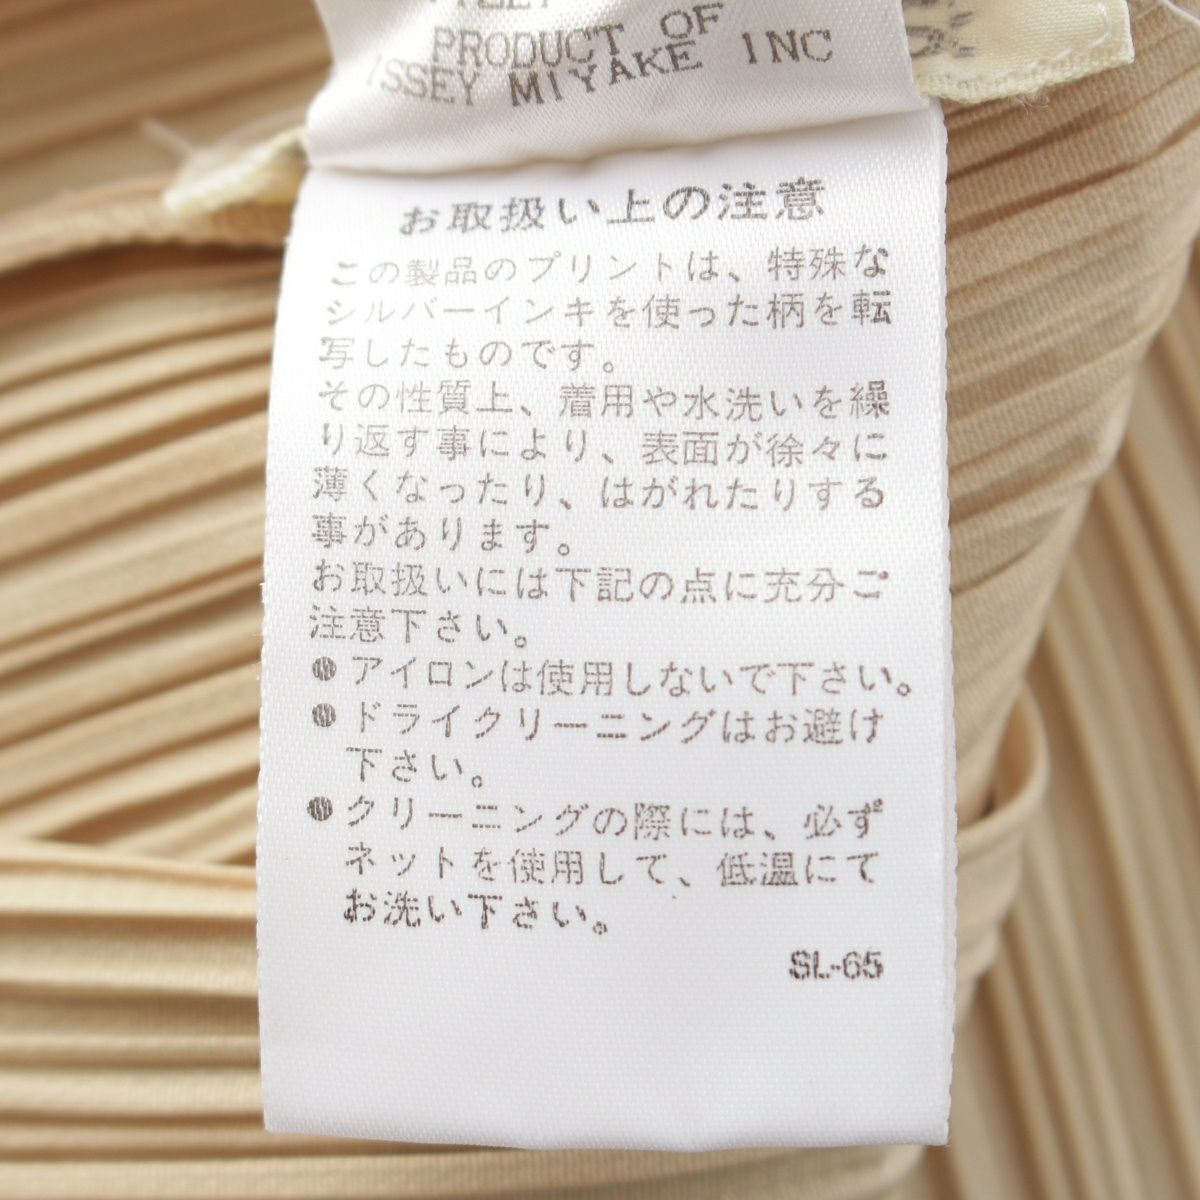 PRODUCT OF
ISSEY MIYAKE INC
お取扱い上の注意
この製品のプリントは、特殊な
シルバーインキを使った柄を転
写したものです。
その性質上、着用や水洗いを繰
り返す事により、表面が徐々に
薄くなったり、はがれたりする
事があります。
お取扱いには下記の点に充分ご
注意下さい。
●アイロンは使用しないで下さい。
●ドライクリーニングはお避け
下さい。
●クリーニングの際には、必ず
ネットを使用して、低温にて
お洗い下さい。
SL-65